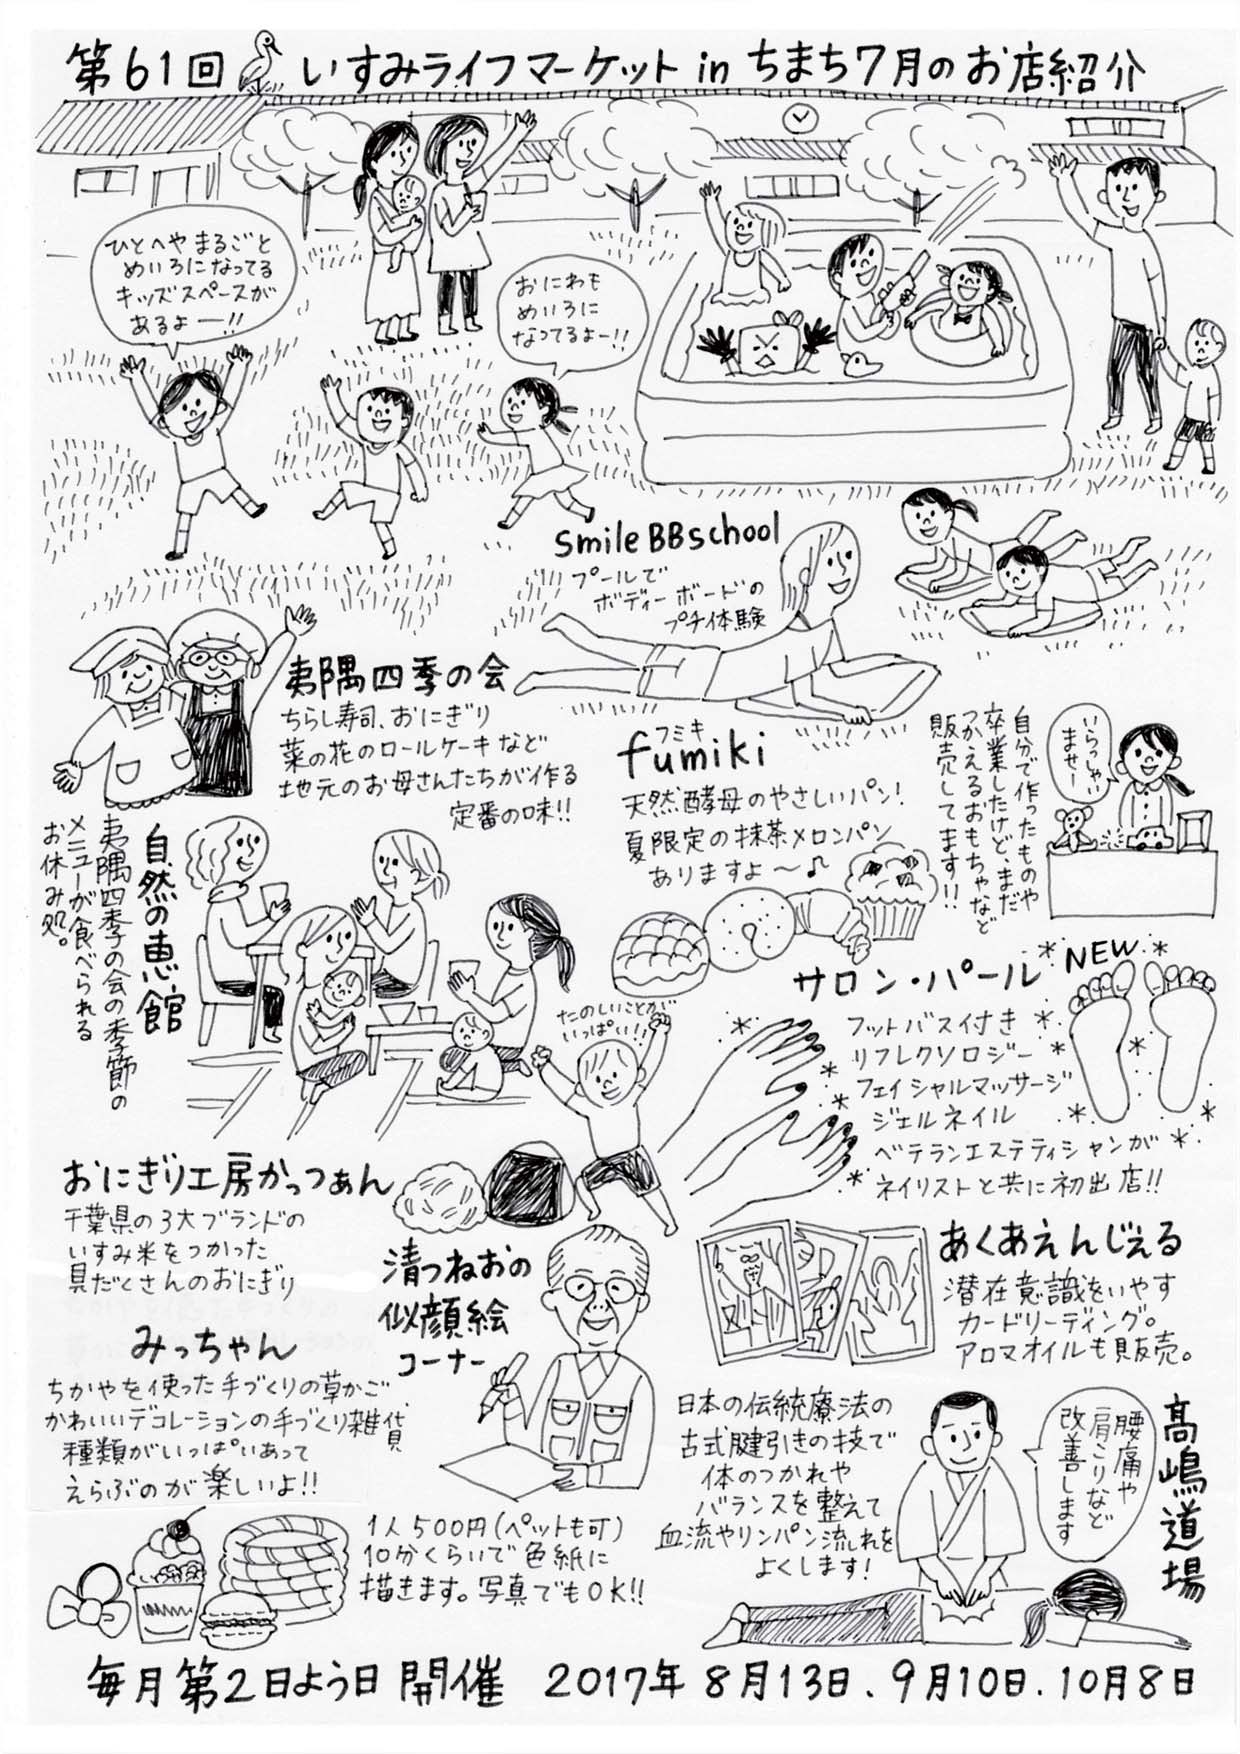 第61回 いすみライフマーケット in ちまち7月のお店紹介
ひとへやまるごと
めいろになってる
キッズスペースが
あるよー!!
おにわも
めいろに
なってるよー!!
smile BBschool
プールで
ボディーボードの
プチ体験
夷隅四季の会
ちらし寿司、おにぎり
菜の花のロールケーキなど
地元のお母さんたちが作る
定番の味!!
フミキ
fumiki
天然酵母のやさしいパン!
夏限定の抹茶メロンパン
ありますよ〜♪
自分で作ったものや
卒業したけど、まだ
つかえるおもちゃなど
販売してます!!
いらっしゃい
ませー!
自然の恵館
夷隅四季の会の季節の
メニューが食べられる
お休み処。
たのしいことが
いっぱい!!
サロン・パール
NEW
フットバス付き
リフレクソロジー
フェイシャルマッサージ
ジェルネイル
ベテランエステティシャンが
ネイリストと共に初出店!!
おにぎり工房かっつぁん
千葉県の3大ブランドの
いすみ米をつかった
具だくさんのおにぎり
清つねおの
似顔絵
コーナー
あくあえんじぇる
潜在意識をいやす
カードリーディング。
アロマオイルも販売。
みっちゃん
ちがやを使った手づくりの草かご、
かわいいデコレーションの手づくり雑貨
種類がいっぱいあって
えらぶのが楽しいよ!!
1人500円(ペットも可)
10分くらいで色紙に
描きます。写真でもOK!!
日本の伝統療法の
古式腱引きの技で
体のつかれや
バランスを整えて
血流やリンパン流れを
よくします!
腰痛や
肩こりなど
改善します
高嶋道場
毎月第2日よう日開催 2017年8月13日、9月10日、10月8日